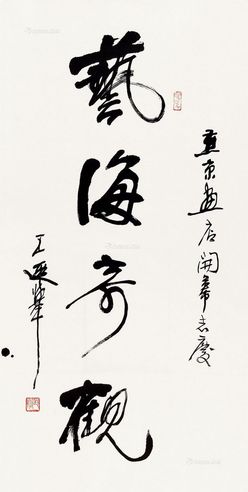 燕京画店開幕志慶
藝海奇觀
王遐舉